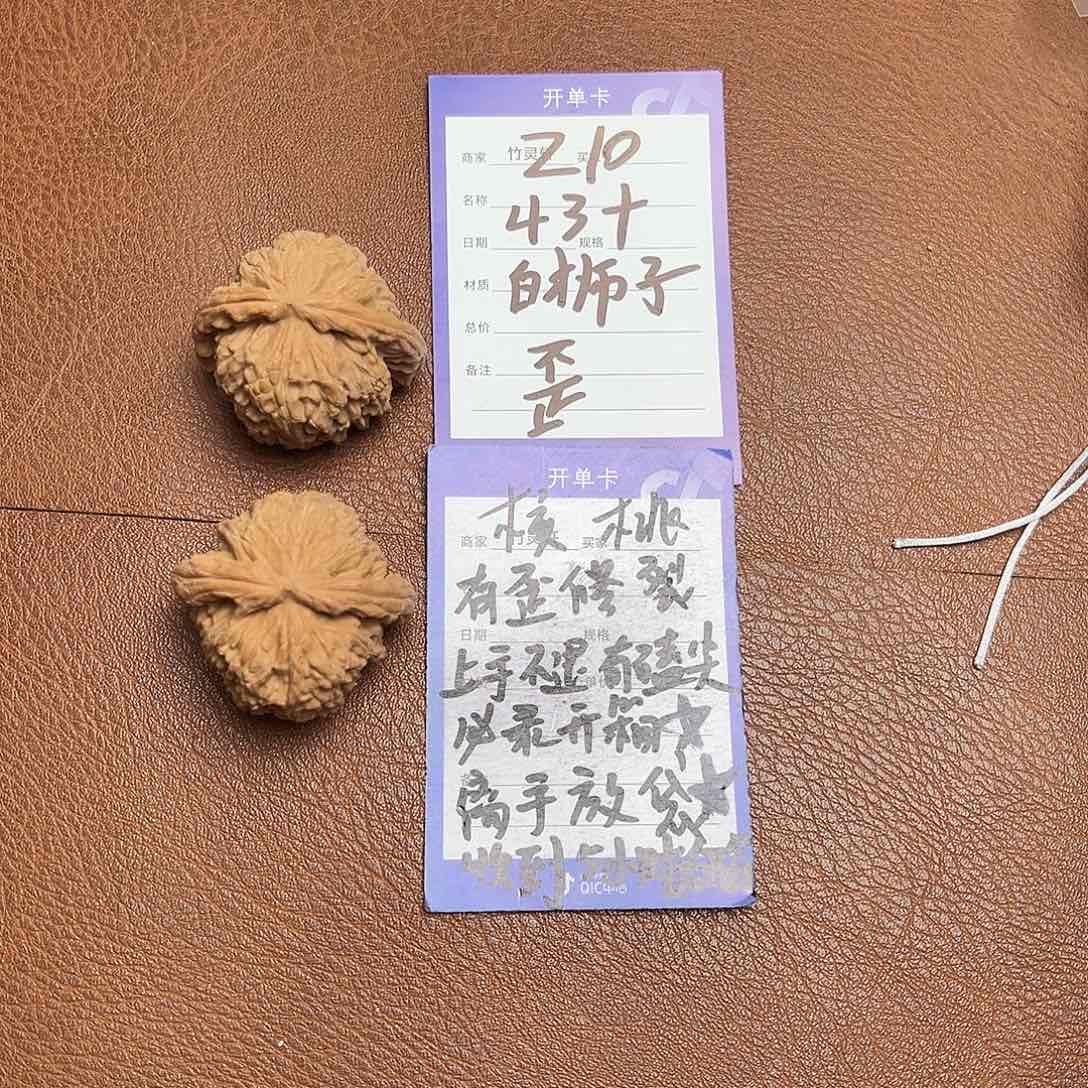 开单卡
商家 竹灵 买
Z10
名称
43十
日期 规格
材质
白狮子
总价
备注
歪
开单卡
核桃
商家 买家
有歪修裂
日期 规格
上手不退有磕尖
必录开箱★
离手放袋★
收到
QIC